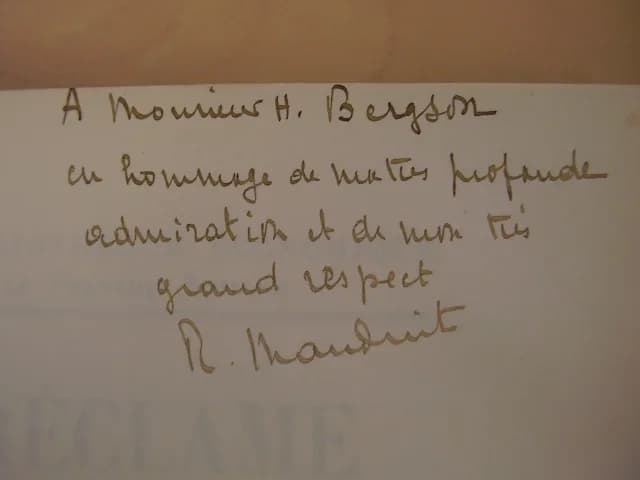 A Monsieur H. Bergson
en hommage de ma très profonde
admiration et de mon très
grand respect
R. Mauduit
RÉCLAME